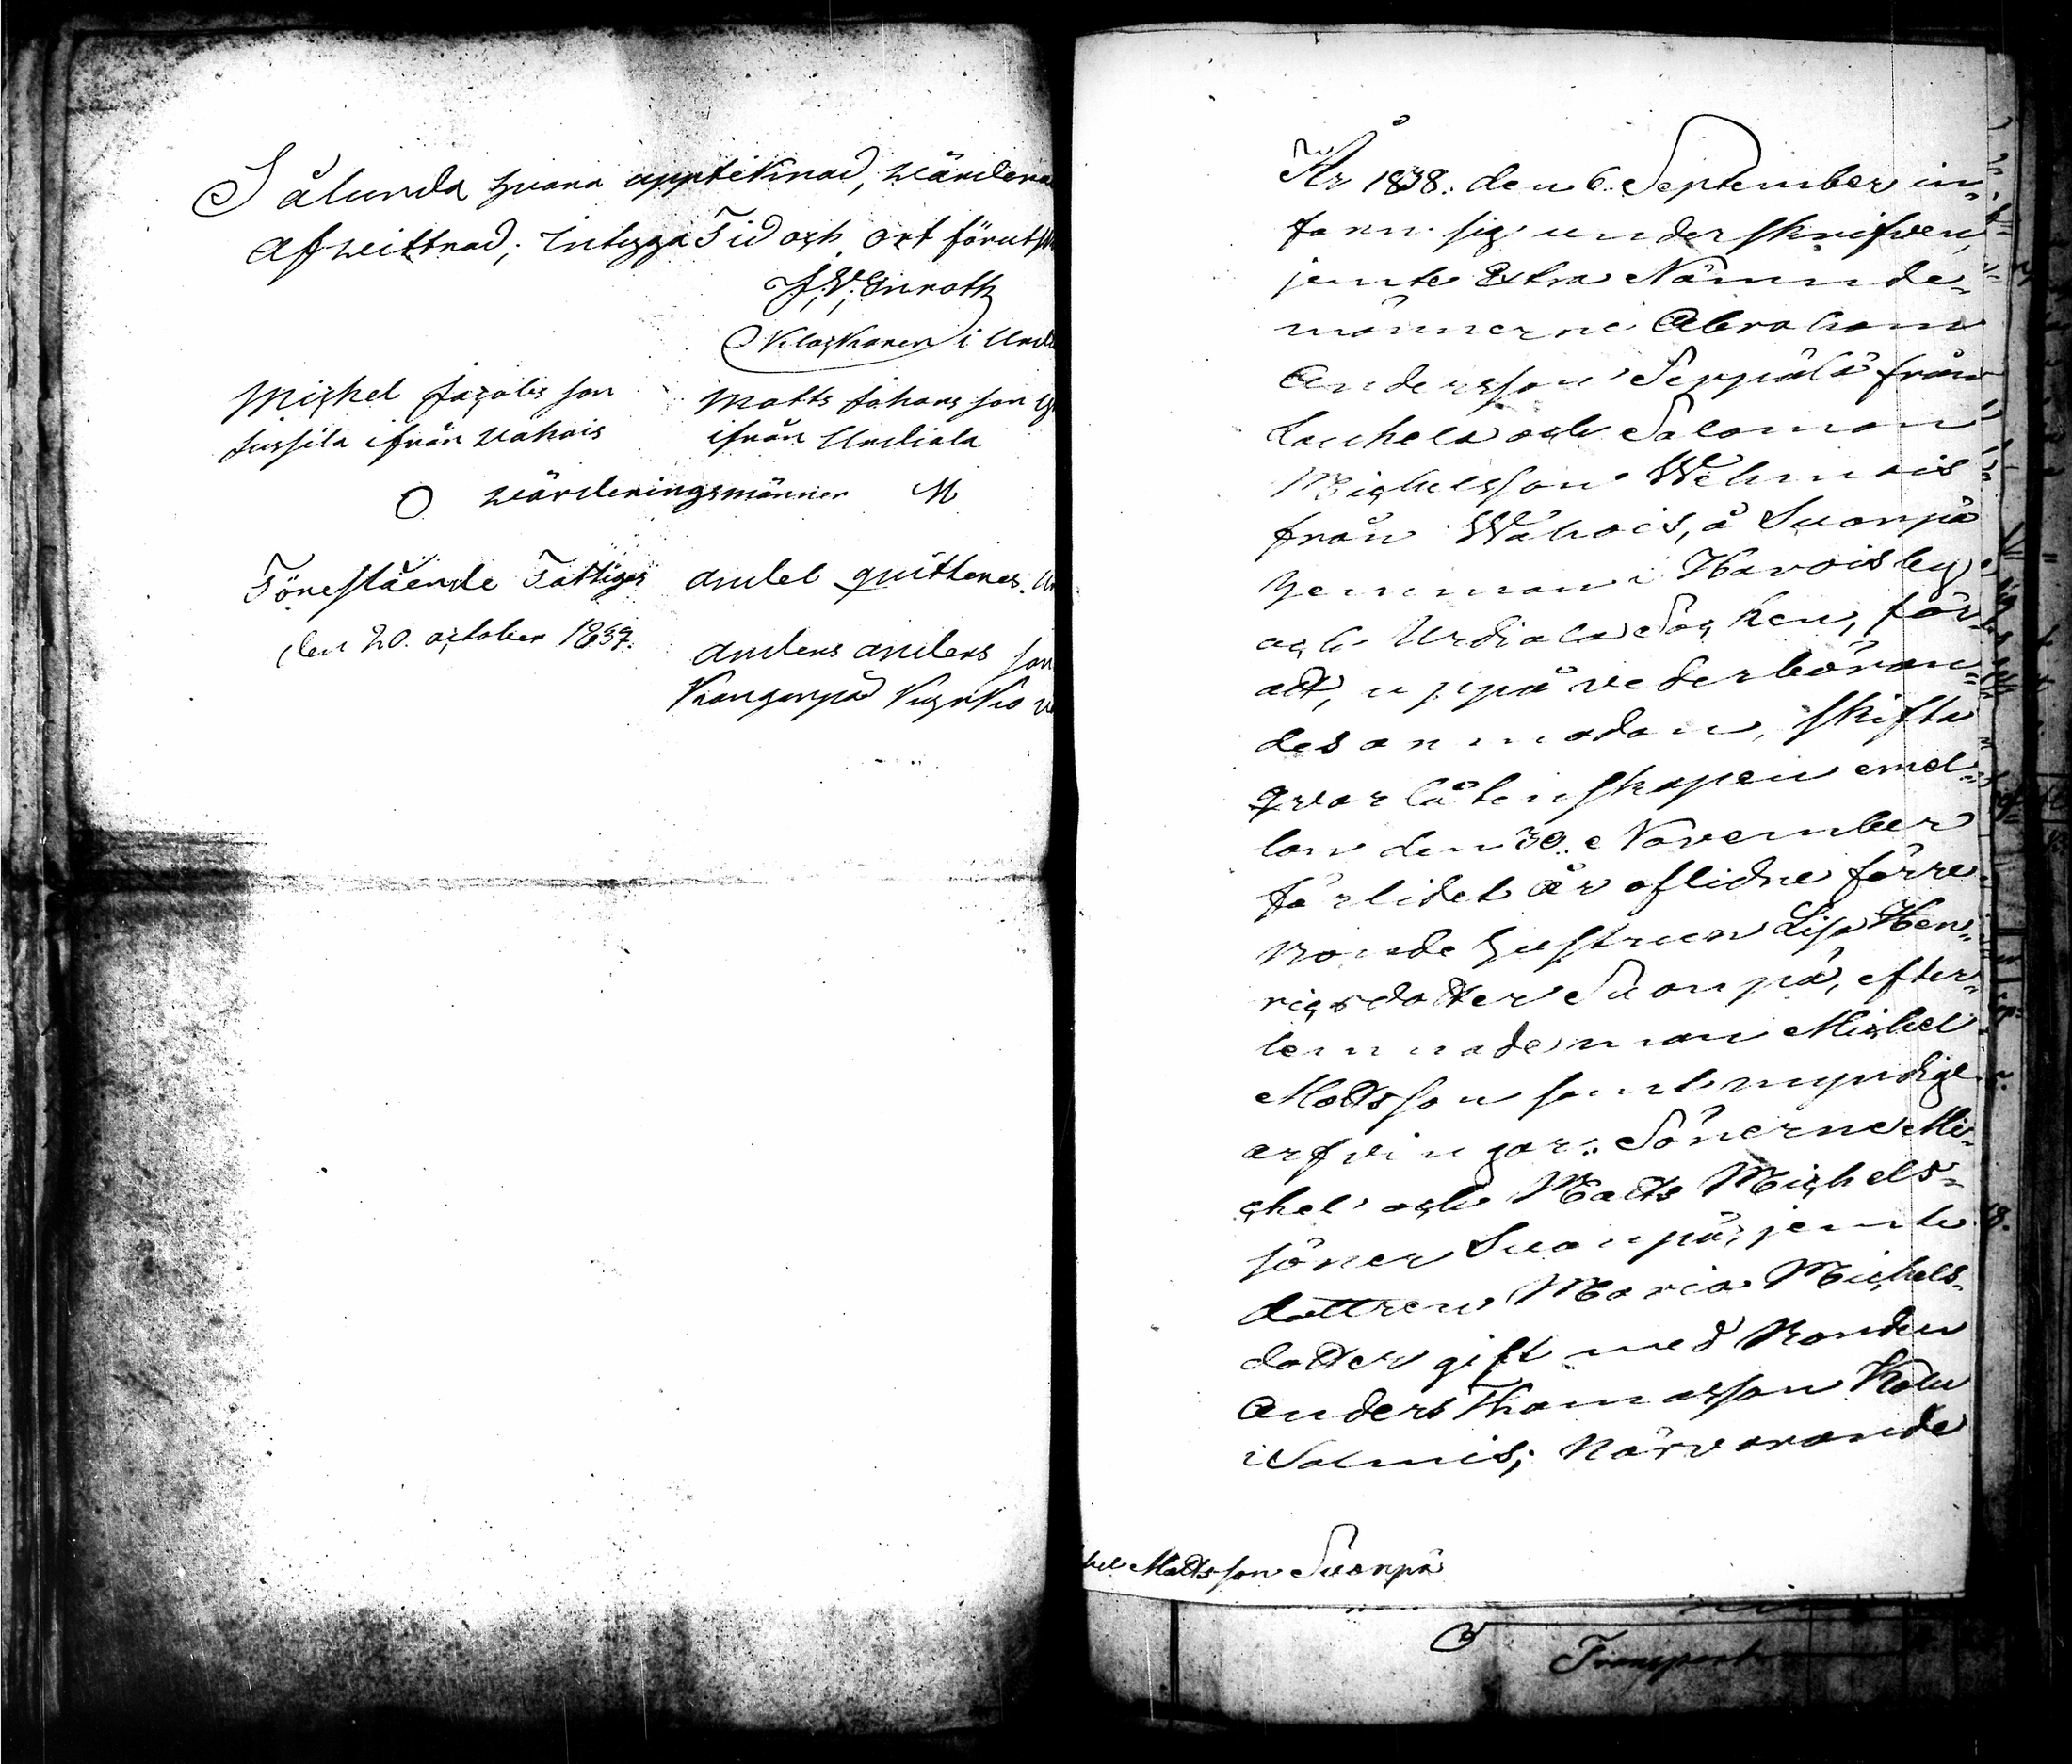 Sålunda vara upptéknad, värdera
afvittrad; intyga Tid och ort förut
J. V. Enroth
Klockaren i Urdi
Michel Jacobs son
Jussila ifrån vahois
Matts Johans son
ifrån Urdiala
värderingsmänner
Förestående Fattiges andel quitteras. Ur
den 20. october 1837.
Anders anders son
Kanganpä Kyrkio
År 1838. den 6. September in-
fann sig underskrifven,
jemte Extra Nämnde-
männerne Abraham
Andersson Seppälä från
Laukela och Salomon
Michelsson Wehmais
från Wahois, å Suonpä
hemman i Harvois by
och Urdiala Socken, för
att, uppå vederböran-
des anmodan, skifta
qvarlåtenskapen emel-
lan den 30. November
förlidet år aflidne förre
Bonde hustrun Lisa Hen-
ricsdotter Suonpä, efter-
lemnade man Michel
Mattsson samt myndige
arfvingar: Sönerne Mi-
chel och Matts Michels-
söner Suonpä, jemte
dottren Maria Michels-
dotter gift med Bonden
Anders Thomasson Kolu
i Salmis; Närvarande
hel Mattsson Suonpä
Transport